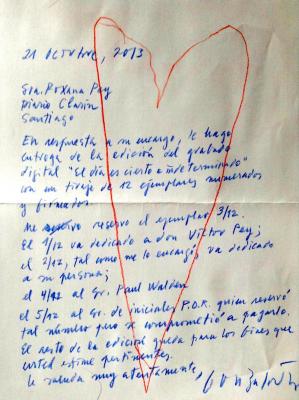 21 octubre, 2013
Sra. Roxana Pey
Diario Clarín
Santiago
En respuesta a su encargo, le hago
entrega de la edición del grabado
digital "El día es cierto e indeterminado"
con un tiraje de 12 ejemplares numerados
y firmados.
Me reservo el ejemplar 3/12.
El 1/12 va dedicado a don Víctor Pey;
el 2/12, tal como me lo encargó, va dedicado
a su persona;
el 4/12 al Sr. Paul Walder
el 5/12 al Sr. de iniciales P.O.K. quien reservó
tal número pero se comprometió a pagarlo.
El resto de la edición queda para los fines que
usted estime pertinentes.
Le saluda muy atentamente,